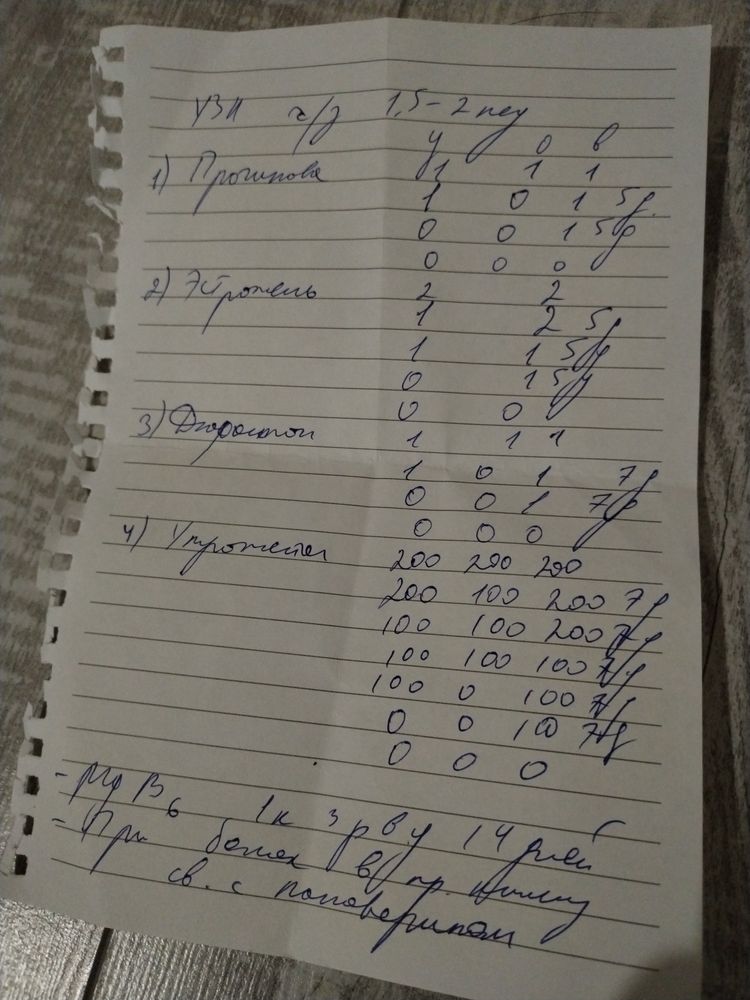 УЗИ ч/з 1,5-2 нед
у о в
1) Прогинова 1 1 1
1 0 1 5д
0 0 1 5д
0 0 0
2) Эстрожель 2 2
1 2 5д
1 1 5д
0 1 5д
0 0
3) Дюфастон 1 1 1
1 0 1 7д
0 0 1 7д
0 0 0
4) Утрожестан 200 200 200
200 100 200 7д
100 100 200 7д
100 100 100 7д
100 0 100 7д
0 0 100 7д
0 0 0
- В6 1к 3 р в д 14 дней
- При болях в пр. кишку
св. с папаверином